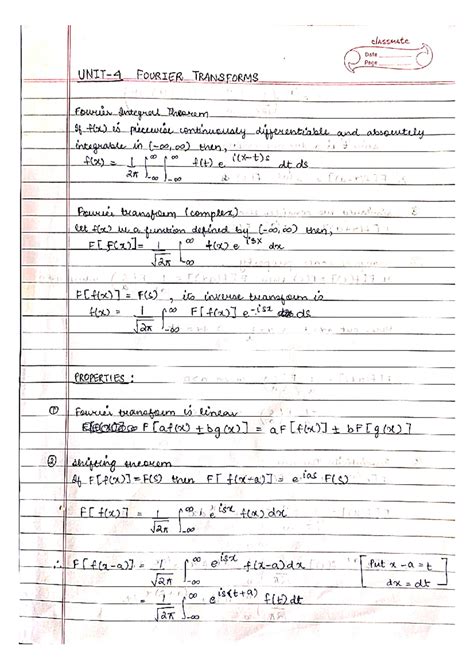 classmate
Date
Page
UNIT-4 FOURIER TRANSFORMS
Fourier Integral Theorem
If f(x) is piecewise continuously differentiable and absolutely
integrable in (-∞, ∞) then,
f(x) = 1/2π ∫_-∞^∞ ∫_-∞^∞ f(t) e^{i(x-t)s} dt ds
Fourier transform (complex)
let f(x) be a function defined by (-∞, ∞) then,
F[f(x)] = 1/√2π ∫_-∞^∞ f(x) e^{isx} dx
F[f(x)] = F(s), its inverse transform is
f(x) = 1/√2π ∫_-∞^∞ F[f(x)] e^{-isx} ds
PROPERTIES:
① Fourier transform is linear
F[af(x) ± bg(x)] = aF[f(x)] ± bF[g(x)]
② Shifting theorem
If F[f(x)] = F(s) then F[f(x-a)] = e^{ias} F(s)
F[f(x)] = 1/√2π ∫_-∞^∞ e^{isx} f(x) dx
∴ F[f(x-a)] = 1/√2π ∫_-∞^∞ e^{isx} f(x-a) dx [Put x-a = t
dx = dt]
= 1/√2π ∫_-∞^∞ e^{is(t+a)} f(t) dt